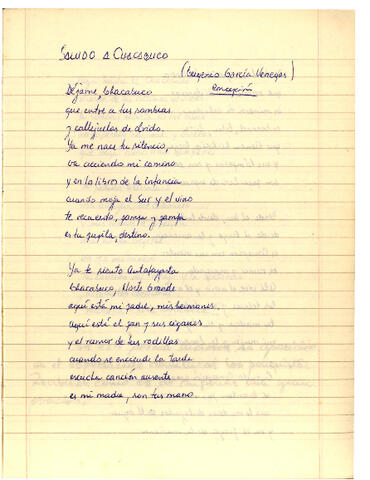 SALUDO A CHACABUCO
(Eugenio García Venegas)
Concepción
Déjame, Chacabuco
que entre a tus sombras
y callejuelas de olvido.
Ya me nace tu silencio,
va creciendo mi camino
y en la libros de la infancia
cuando moja el Sur y el vino
te recuerdo, pampa y pampa
es tu pupila, destino.
Ya te siento Antofagasta
Chacabuco, Norte Grande
aquí está mi padre, mis hermanos
aquí está el pan y sus cigarros
y el rumor de tus rodillas
cuando se enciende la tarde
escucha canción ausente
es mi madre, son tus manos